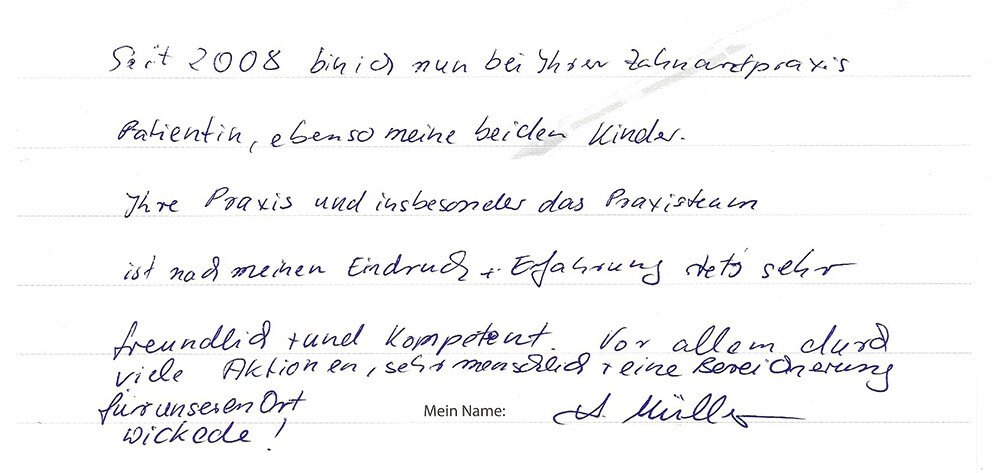 Seit 2008 bin ich nun bei Ihrer Zahnarztpraxis
Patientin, ebenso meine beiden Kinder.
Ihre Praxis und insbesonder das Praxisteam
ist nach meinen Eindruck + Erfahrung stets sehr
freundlich + und kompetent. Vor allem durch
viele Aktionen, sehr menschlich + eine Bereicherung
für unseren Ort
Wickede!
Mein Name: A. Müller